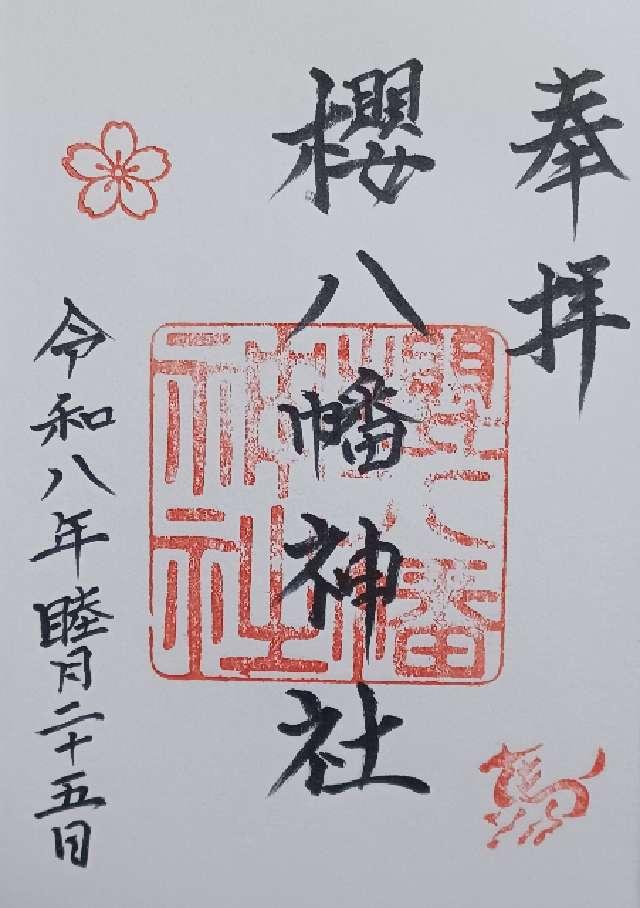 奉拝
櫻八幡神社
櫻八幡神社
令和八年睦月二十五日